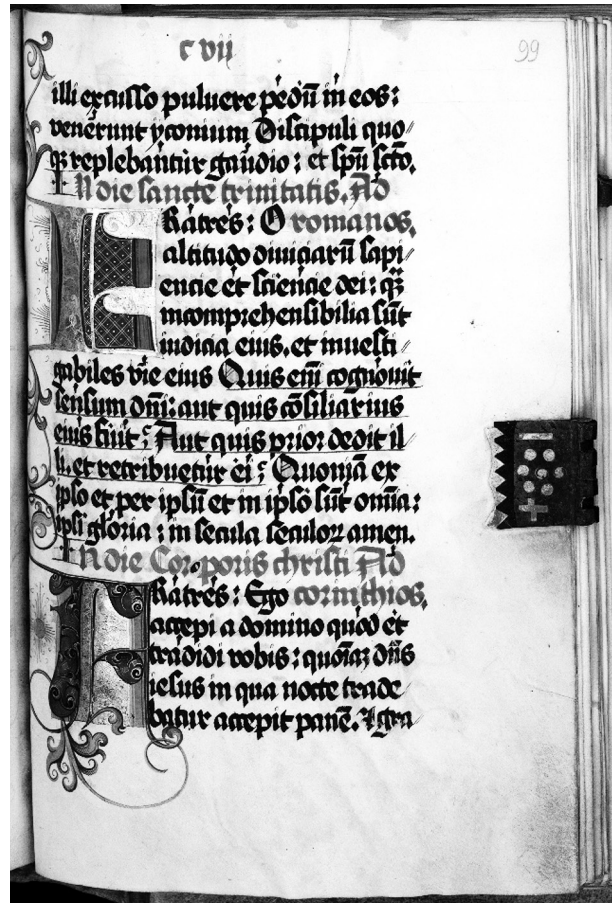 c vij
99
illi excusso puluere pedū in eos:
venerunt yconium Discipuli quo⸗
qꝫ replebantur gaudio: et spū scto.
In die sancte trinitatis. Ad
Fratres: O romanos.
altitudo diuiciarū sapi⸗
encie et sciencie dei: qꝫ
incomprehensibilia sūt
iudicia eius. et inuesti⸗
gabiles vie eius Quis eni cognouit
sensum dnī: aut quis cōsiliarius
eius fuit? Aut quis prior dedit il
li. et retribuetur ei? Quoniā ex
ipso et per ipsū et in ipso sūt omīa:
ipsi gloria: in secula seculoꝝ amen.
In die Corporis christi Ad
Fratres: Ego corinthios.
accepi a domino quod et
tradidi vobis: quoniaꝫ dns
iesus in qua nocte trade⸗
batur accepit panē. ⁊ gra